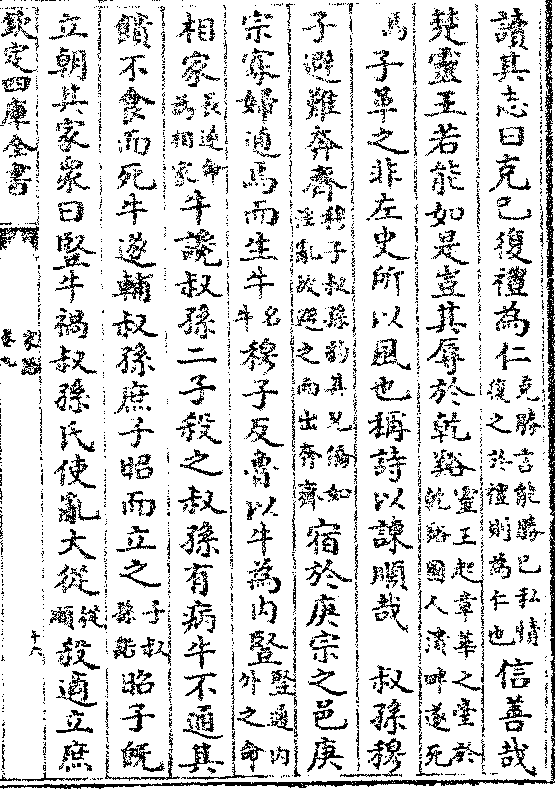 讀其志曰克己復禮為仁克勝言能勝己私情復之於禮則為仁也信善哉
楚靈王若能如是豈其辱於乾谿靈王起章華之臺於乾谿國人潰畔遂死
焉子革之非左史所以風也稱詩以諫順哉　叔孫穆
子避難奔齊穆子叔孫豹其兄僑如淫亂故避之而出奔齊宿於庚宗之邑庚
宗寡婦通焉而生牛名牛穆子反魯以牛為內豎豎通內外之命
相家長遂命為相家牛讒叔孫二子殺之叔孫有病牛不通其
饋不食而死牛遂輔叔孫庶子昭而立之子叔孫婼昭子既
立朝其家衆曰豎牛禍叔孫氏使亂大從從順殺適立庶
欽定四庫全書
家語
卷九
十六